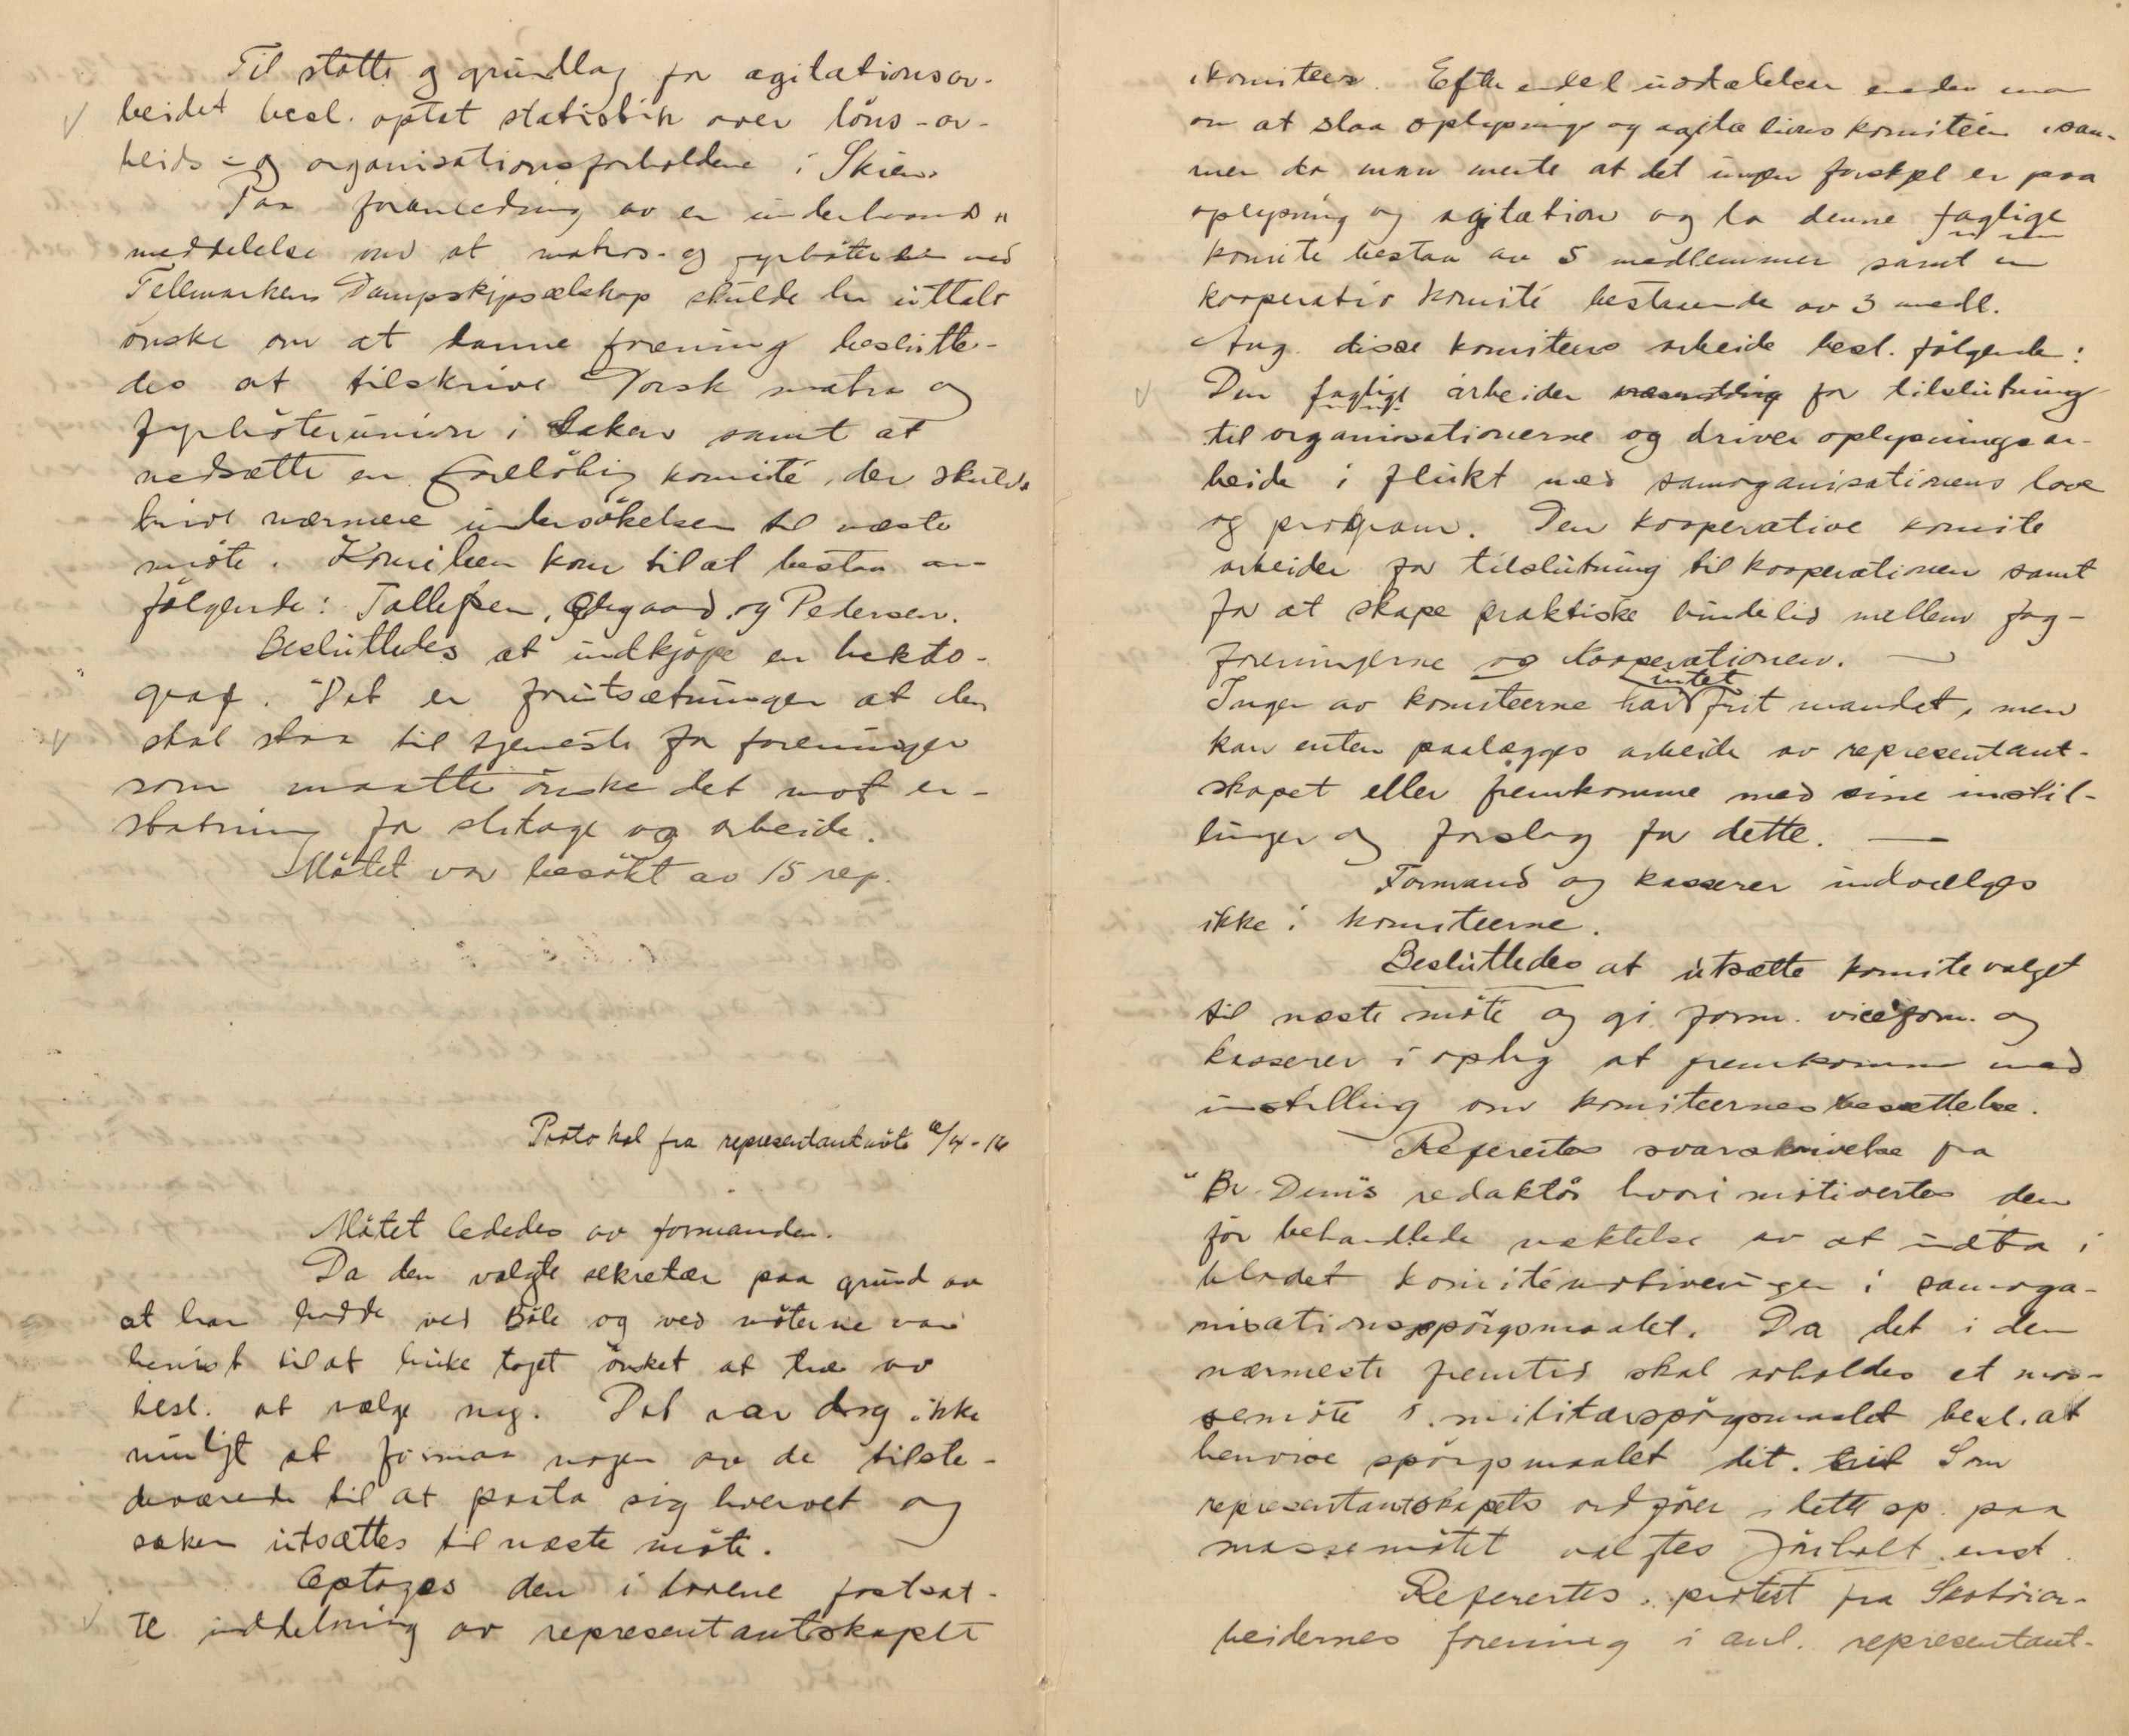 Til støtte og grundlag for agitationsar-
beidet besl. optat statistik over løns-ar-
beids- og organisationsforholdene i Skien.
Paa foranledning av en underhaands
meddelelse om at matros- og fyrbøterne ved
Tellemarkens Dampskipsselskap skulde ha uttalt
ønske om at danne forening beslutte-
des at tilskrive Norsk matros og
fyrbøterunion i saken samt at
nedsætte en foreløbig komité, der skulde
drive nærmere undersøkelser til næste
møte. Komiteen kom til at bestaa av
følgende: Tollefsen, Ødegaard og Pedersen.
Besluttedes at indkjøpe en hekto-
graf. Det er forutsætningen at den
skal staa til tjeneste for foreninger
som maatte ønske det mot er-
statning for slitage og arbeide.
Møtet var besøkt av 15 rep.
Protokol fra representantmøte /4-16
Møtet lededes av formanden.
Da den valgte sekretær paa grund av
at han bodde ved Bøle og ved møterne var
henvist til at bruke toget ønsket at træ av
besl. at vælge ny. Det var dog ikke
muligt at formaa nogen av de tilste-
deværende til at paata sig hvervet og
saken utsættes til næste møte.
Optoges den i lovene fastsat-
te inddeling av representantskapet
i komiteer. Efter endel uttalelser enedes man
om at slaa oplysnings og agitationskomiteen sam-
men da man mente at det ingen forskjel er paa
oplysning og agitation og la denne faglige
komite bestaa av 5 medlemmer samt en
kooperativ komité bestaaende av 3 medl.
Ang. disse komiteers arbeide besl. følgende:
Den faglige arbeider for tilslutning
til organisationerne og driver oplysningsar-
beide i flukt med samorganisationens love
og program. Den kooperative komite
arbeider for tilslutning til kooperationen samt
for at skape praktiske bindeled mellem fag-
foreningerne og kooperationen. —
Ingen av komiteerne har intet frit mandat, men
kan enten paalægges arbeide av representant-
skapet eller fremkomme med sine instil-
linger og forslag for dette. —
Formand og kasserer indvælges
ikke i komiteerne.
Besluttedes at utsætte komitevalget
til næste møte og gi form. viceform. og
kasserer i oplag at fremkomme med
instilling om komiteernes besættelse.
Refereites svarskrivelse fra
"Br. Dem"s redaktør hvori motivertes den
før behandlede nektelse av at indta i
bladet komitémotiveringen i samorga-
nisationsspørgsmaalet. Da det i den
nærmeste fremtid skal avholdes et mas-
semøte i militærspørgsmaalet besl. at
henvise spørgsmaalet dit. Som
representantskapets ordfører i dette sp. paa
massemøtet valgtes enst.
Referertes protest fra Skotøiar-
beidernes forening i anl. representant-